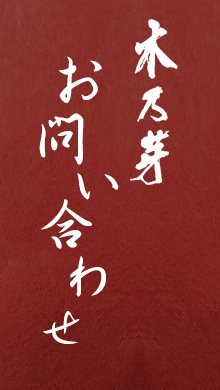 木乃芽
お問い合わせ